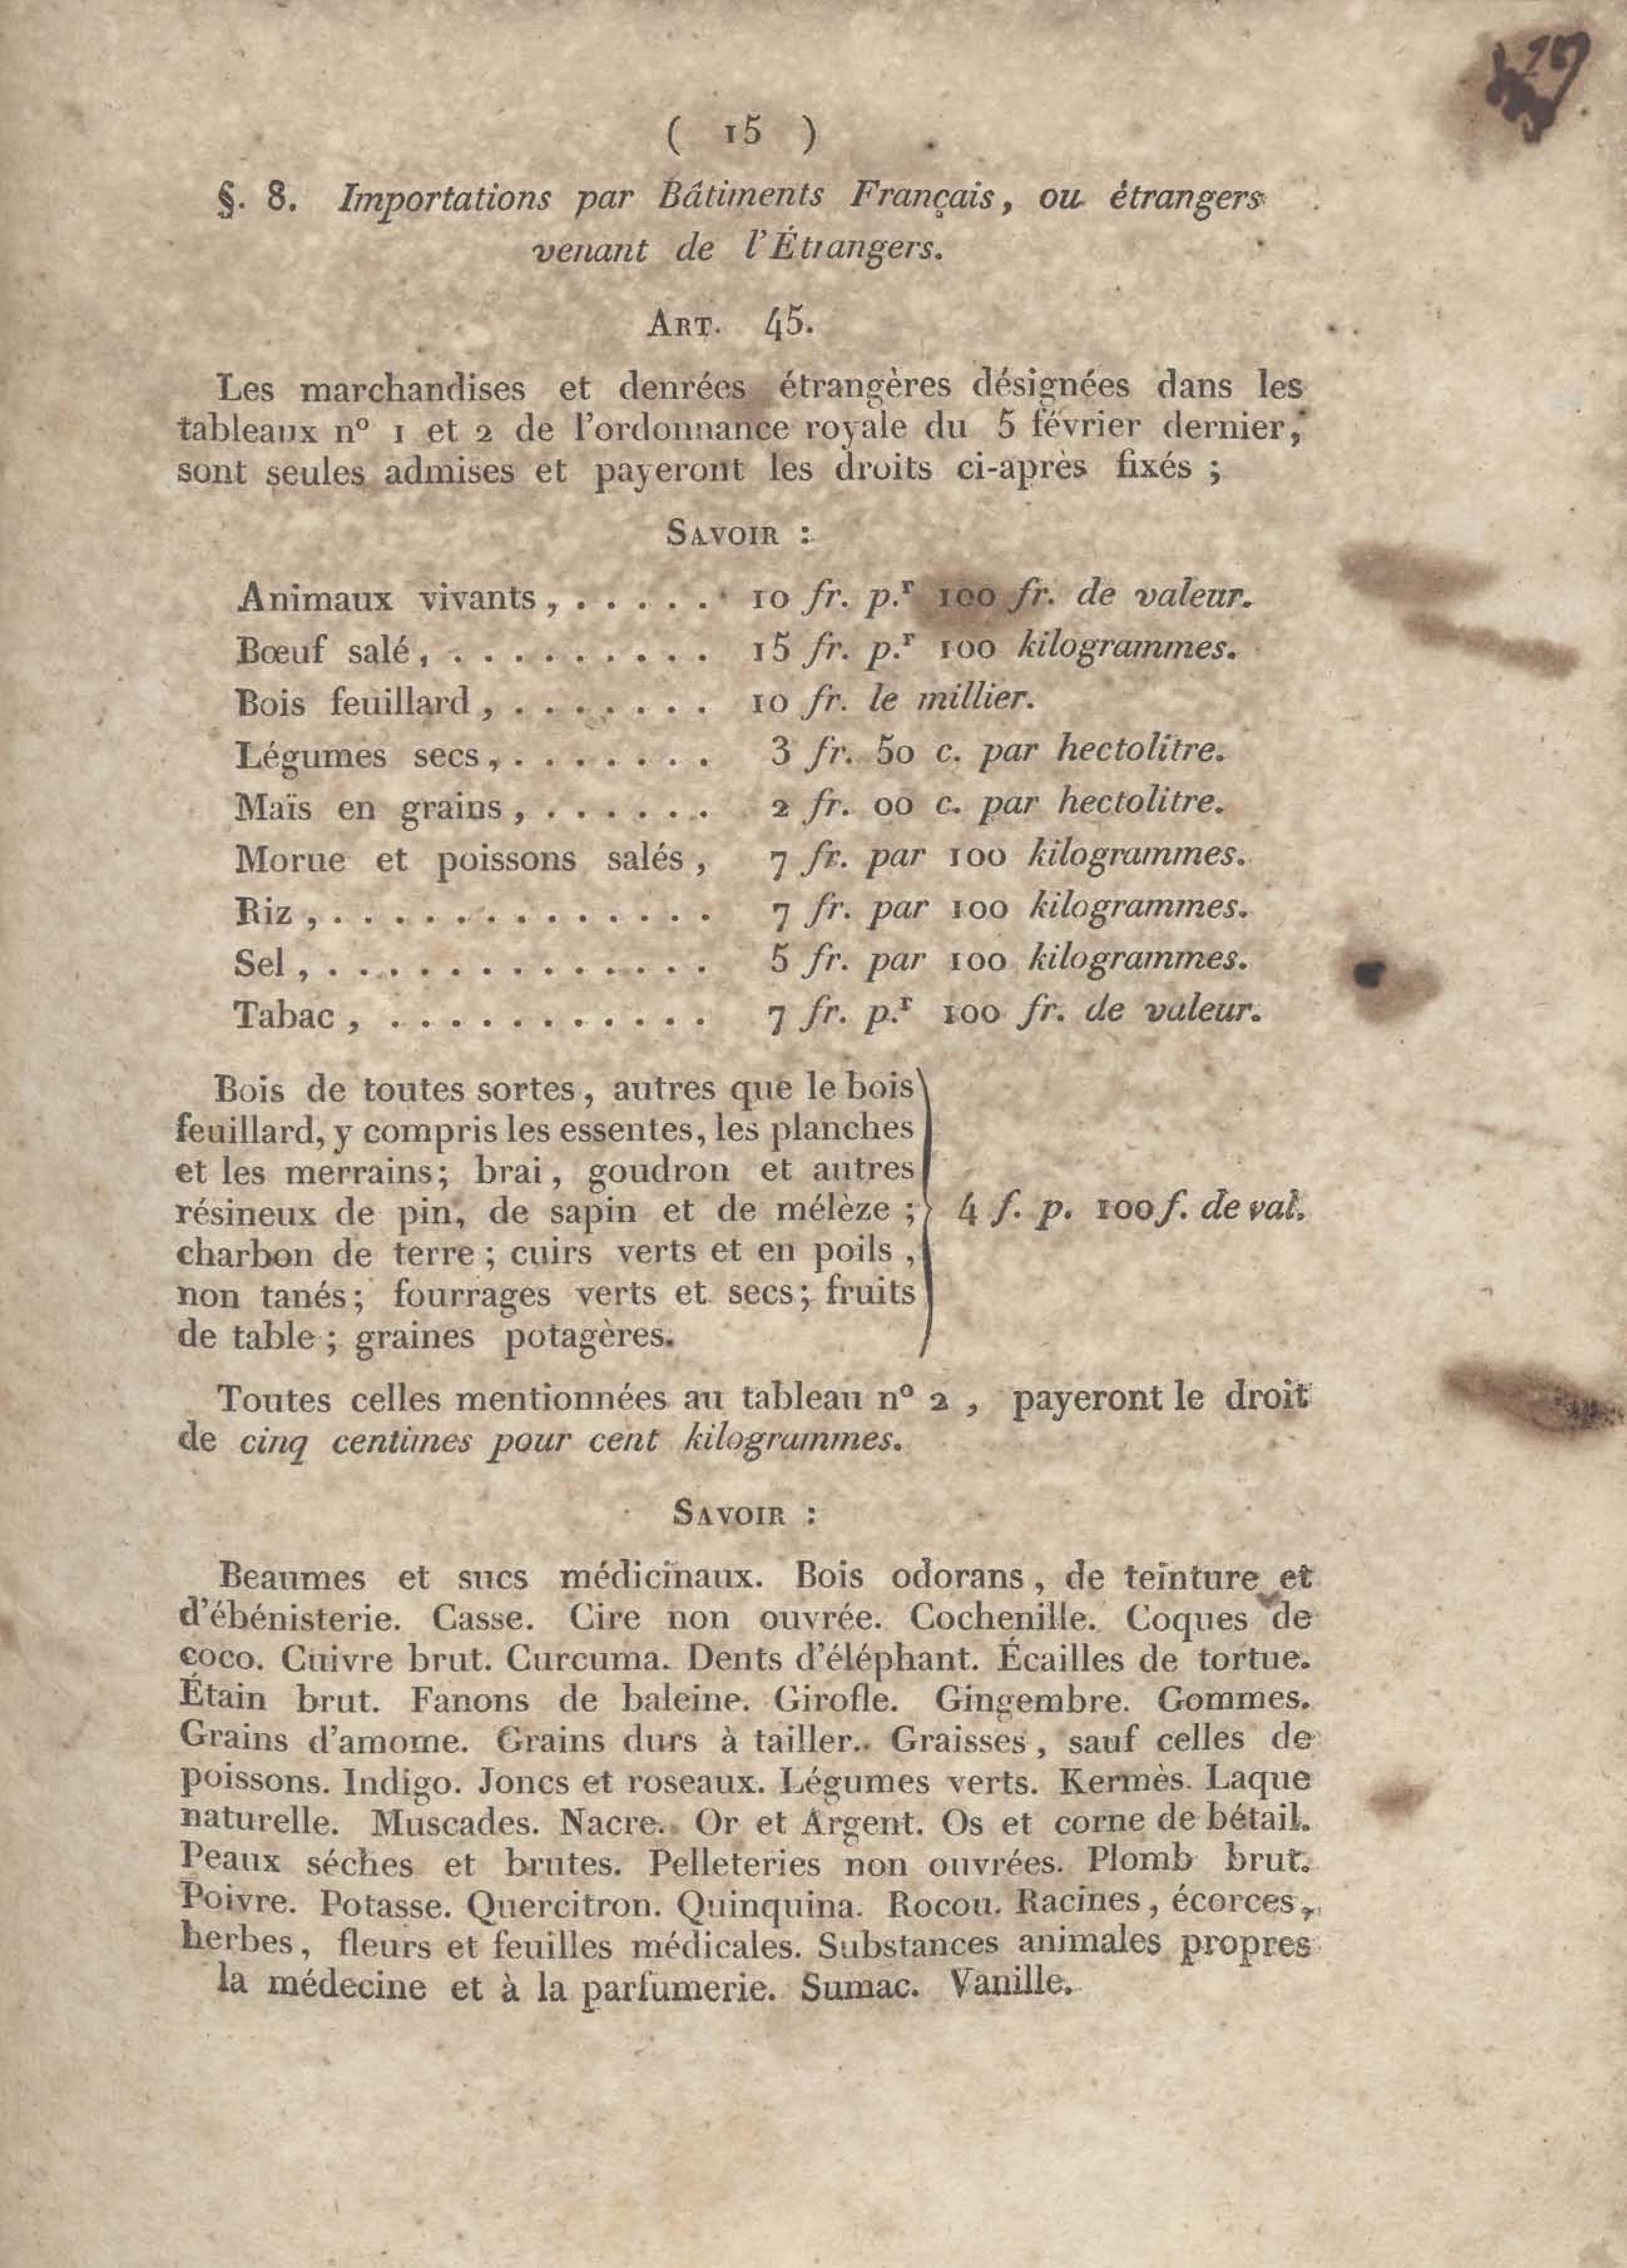 ( 15 )
§. 8. Importations par Bâtiments Français, ou étrangers
venant de l'Étrangers.
ART. 45.
Les marchandises et denrées étrangères désignées dans les
tableaux nº 1 et 2 de l'ordonnance royale du 5 février dernier,
sont seules admises et payeront les droits ci-après fixés ;
SAVOIR :
Animaux vivants, . . . . . . 10 fr. p.r 100 fr. de valeur.
Bœuf salé, . . . . . . . . . 15 fr. p.r 100 kilogrammes.
Bois feuillard, . . . . . . . 10 fr. le millier.
Légumes secs, . . . . . . . 3 fr. 50 c. par hectolitre.
Maïs en grains, . . . . . . 2 fr. 00 c. par hectolitre.
Morue et poissons salés, 7 fr. par 100 kilogrammes.
Riz, . . . . . . . . . . . . . 7 fr. par 100 kilogrammes.
Sel, . . . . . . . . . . . . . 5 fr. par 100 kilogrammes.
Tabac, . . . . . . . . . . . 7 fr. p.r 100 fr. de valeur.
Bois de toutes sortes, autres que le bois
feuillard, y compris les essentes, les planches
et les merrains; brai, goudron et autres
résineux de pin, de sapin et de mélèze ; 4 f. p. 100 f. de val.
charbon de terre ; cuirs verts et en poils,
non tanés; fourrages verts et secs; fruits
de table ; graines potagères.
Toutes celles mentionnées au tableau nº 2, payeront le droit
de cinq centimes pour cent kilogrammes.
SAVOIR :
Beaumes et sucs médicinaux. Bois odorans, de teinture et
d'ébénisterie. Casse. Cire non ouvrée. Cochenille. Coques de
coco. Cuivre brut. Curcuma. Dents d'éléphant. Écailles de tortue.
Étain brut. Fanons de baleine. Girofle. Gingembre. Gommes.
Grains d'amome. Grains durs à tailler. Graisses, sauf celles de
poissons. Indigo. Joncs et roseaux. Légumes verts. Kermès. Laque
naturelle. Muscades. Nacre. Or et Argent. Os et corne de bétail.
Peaux séches et brutes. Pelleteries non ouvrées. Plomb brut.
Poivre. Potasse. Quercitron. Quinquina. Rocou. Racines, écorces,
herbes, fleurs et feuilles médicales. Substances animales propres
la médecine et à la parfumerie. Sumac. Vanille.